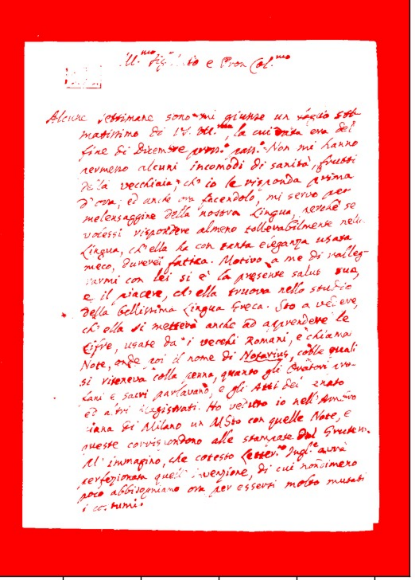 Ill.mo Sig.r mio e Pron Col.mo
Alcune settimane sono mi giunse un foglio sti-
matissimo di V.S. Ill.ma, la cui data era del
fine di Dicembre pross. pass. Non mi hanno
permesso alcuni incomodi di sanità, frutti
della vecchiaia, ch'io le risponda prima
d'ora; ed anche ora facendolo, mi servo per
melensaggine della nostra Lingua, perché se
volessi rispondere almeno tollerabilmente nella
Lingua, ch'ella ha con tanta eleganza usata
meco, durerei fatica. Motivo a me di ralleg-
rarmi con lei si è la presente salute sua,
e il piacere, ch'ella truova nello studio
della bellissima Lingua Greca. Sto a vedere,
ch'ella si metterà anche ad apprendere le
Cifre, usate da i vecchi Romani, e chiamate
Note, onde poi il nome di Notarius, colle quali
si riteneva colla penna, quanto gli Oratori pro-
fani e sacri parlavano, e gli Atti del Senato
ed altri Magistrati. Ho veduto io nell'Ambro-
siana di Milano un MSto con quelle Note, e
queste corrispondono alle stampate dal Grutero.
M'immagino, che cotesto Letter.o Ingl.e avrà
perfezionata quell'invenzione, di cui nondimeno
poco abbisogniamo ora per essersi molto mutati
i costumi.